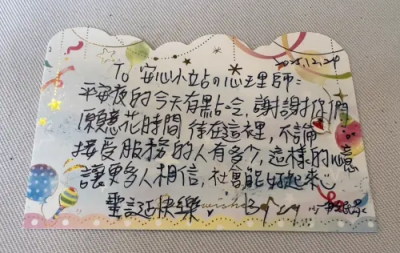 2025.12.24
To 安心小站の心理師:
平安夜的今天有點冷,謝謝你們
願意花時間 待在這裡,不論
接受服務的人有多少,這樣的心意
讓更多人相信,社會能好起來
聖誕延快樂